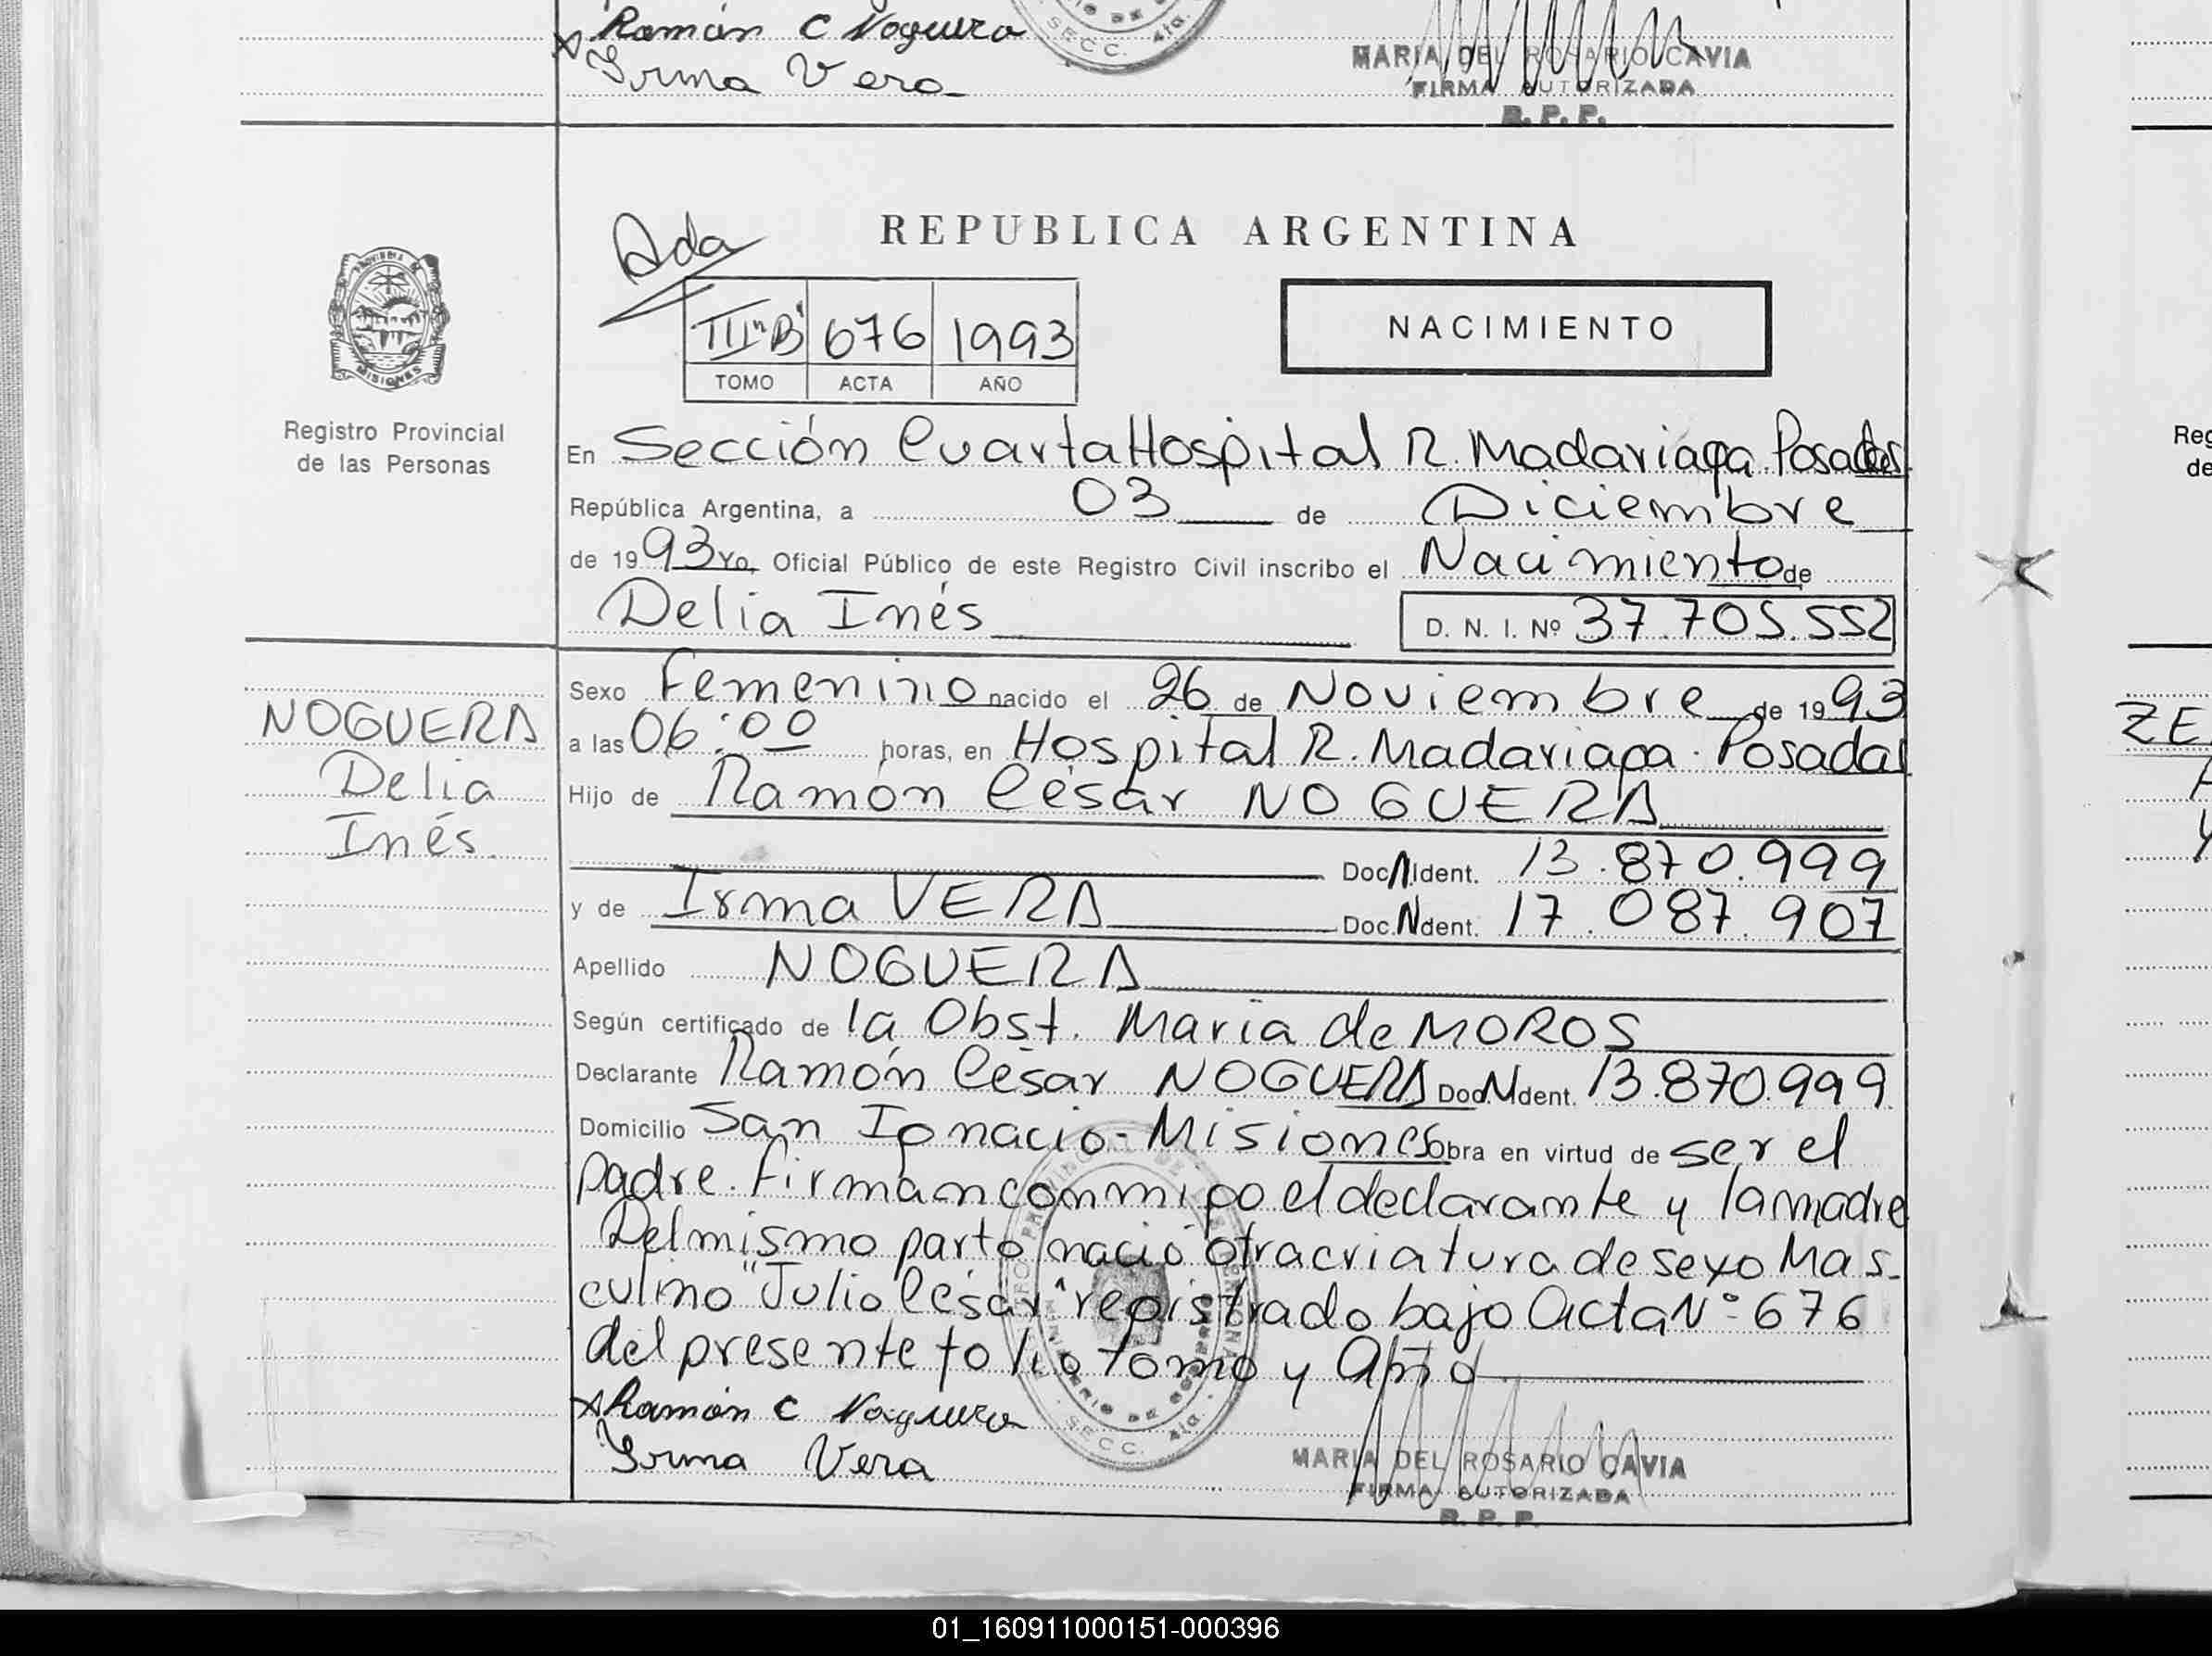 Ramón C Noguera
Irma Vera
SECC. 4ta.
MARIA DEL ROSARIO CAVIA
FIRMA AUTORIZADA
R. P. P.
Ada
REPUBLICA ARGENTINA
III "B" 676 1993
TOMO ACTA AÑO
NACIMIENTO
MISIONES
Registro Provincial
de las Personas
En Sección Cuarta Hospital R. Madariaga Posadas
República Argentina, a 03 de Diciembre
de 1993 Yo, Oficial Público de este Registro Civil inscribo el Nacimiento de
Delia Inés D. N. I. Nº 37.705.552
NOGUERA
Delia
Inés
Sexo Femenino nacido el 26 de Noviembre de 1993
a las 06:00 horas, en Hospital R. Madariaga. Posadas
Hijo de Ramón César NOGUERA
Doc. N. Ident. 13.870.999
y de Irma VERA Doc. N. Ident. 17.087.907
Apellido NOGUERA
Según certificado de la Obst. María de MOROS
Declarante Ramón César NOGUERA Doc. N. Ident. 13.870.999
Domicilio San Ignacio - Misiones Obra en virtud de ser el
padre. Firman conmigo el declarante y la madre
Del mismo parto nació otra criatura de sexo Mas-
culino "Julio César" registrado bajo Acta N° 676
del presente folio tomo y Año
Ramón C Noguera
Irma Vera
SECC. 4ta.
MARIA DEL ROSARIO CAVIA
FIRMA AUTORIZADA
R. P. P.
Reg
de
ZE
01_160911000151-000396